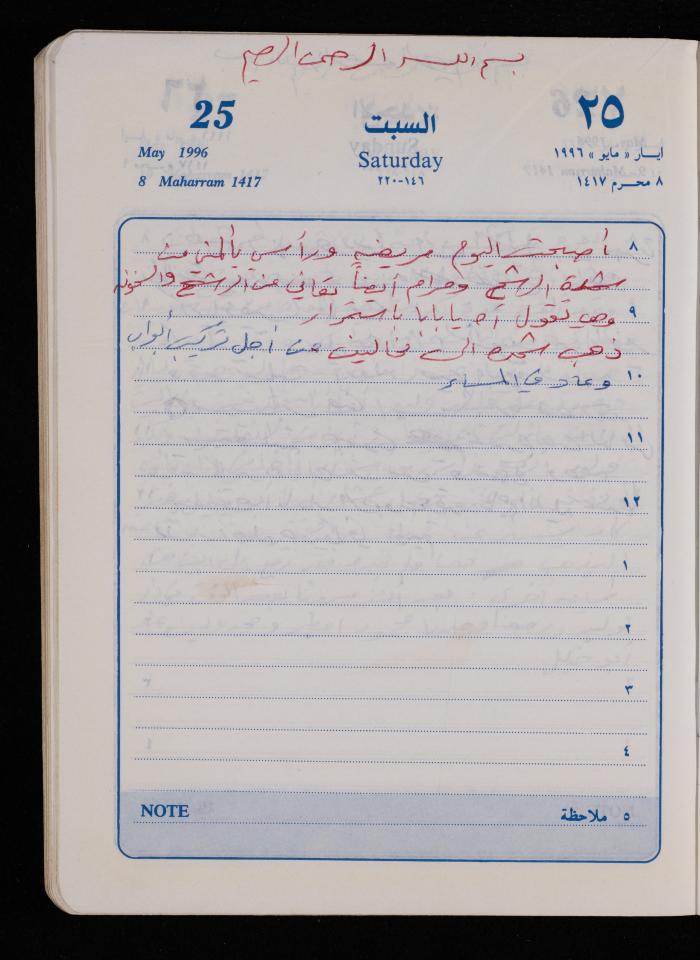 بسم الله الرحمن الرحيم
25
السبت
٢٥
May 1996
Saturday
ايـار « مايو » ١٩٩٦
8 Maharram 1417
١٤٦-٢٢٠
٨ محـرم ١٤١٧
٨ أصبحت اليوم مريضه ورأسي يألمني من
شدة الرشح ومرام أيضاً تعاني من الرشح والسخونه
٩ وهي تقول آه يا بابا باستمرار
ذهب شحده الى من أجل تركيب أبواب
١٠ وعاد في المساء
١١
١٢
١
٢
٣
٤
NOTE
٥ ملاحظة